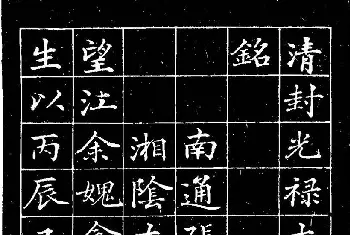 清封光禄
銘
南通張
湘陰
望江余媿
生以丙辰